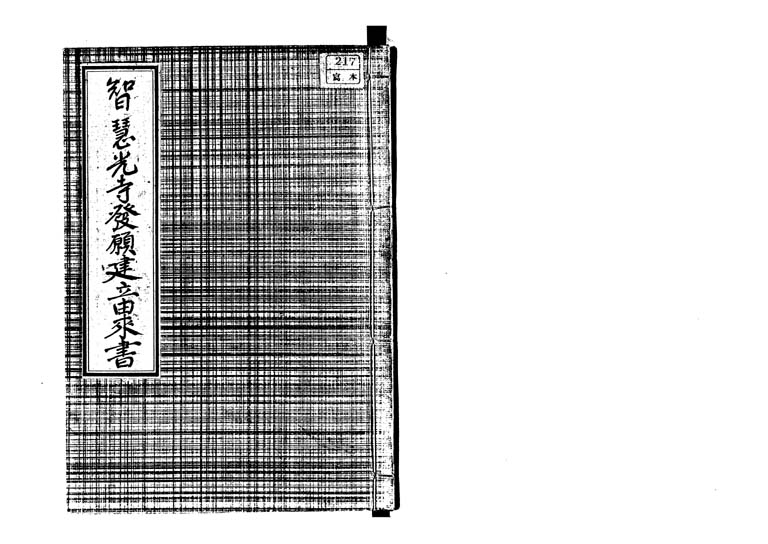 智慧光寺發願建立由來書
217
寫本